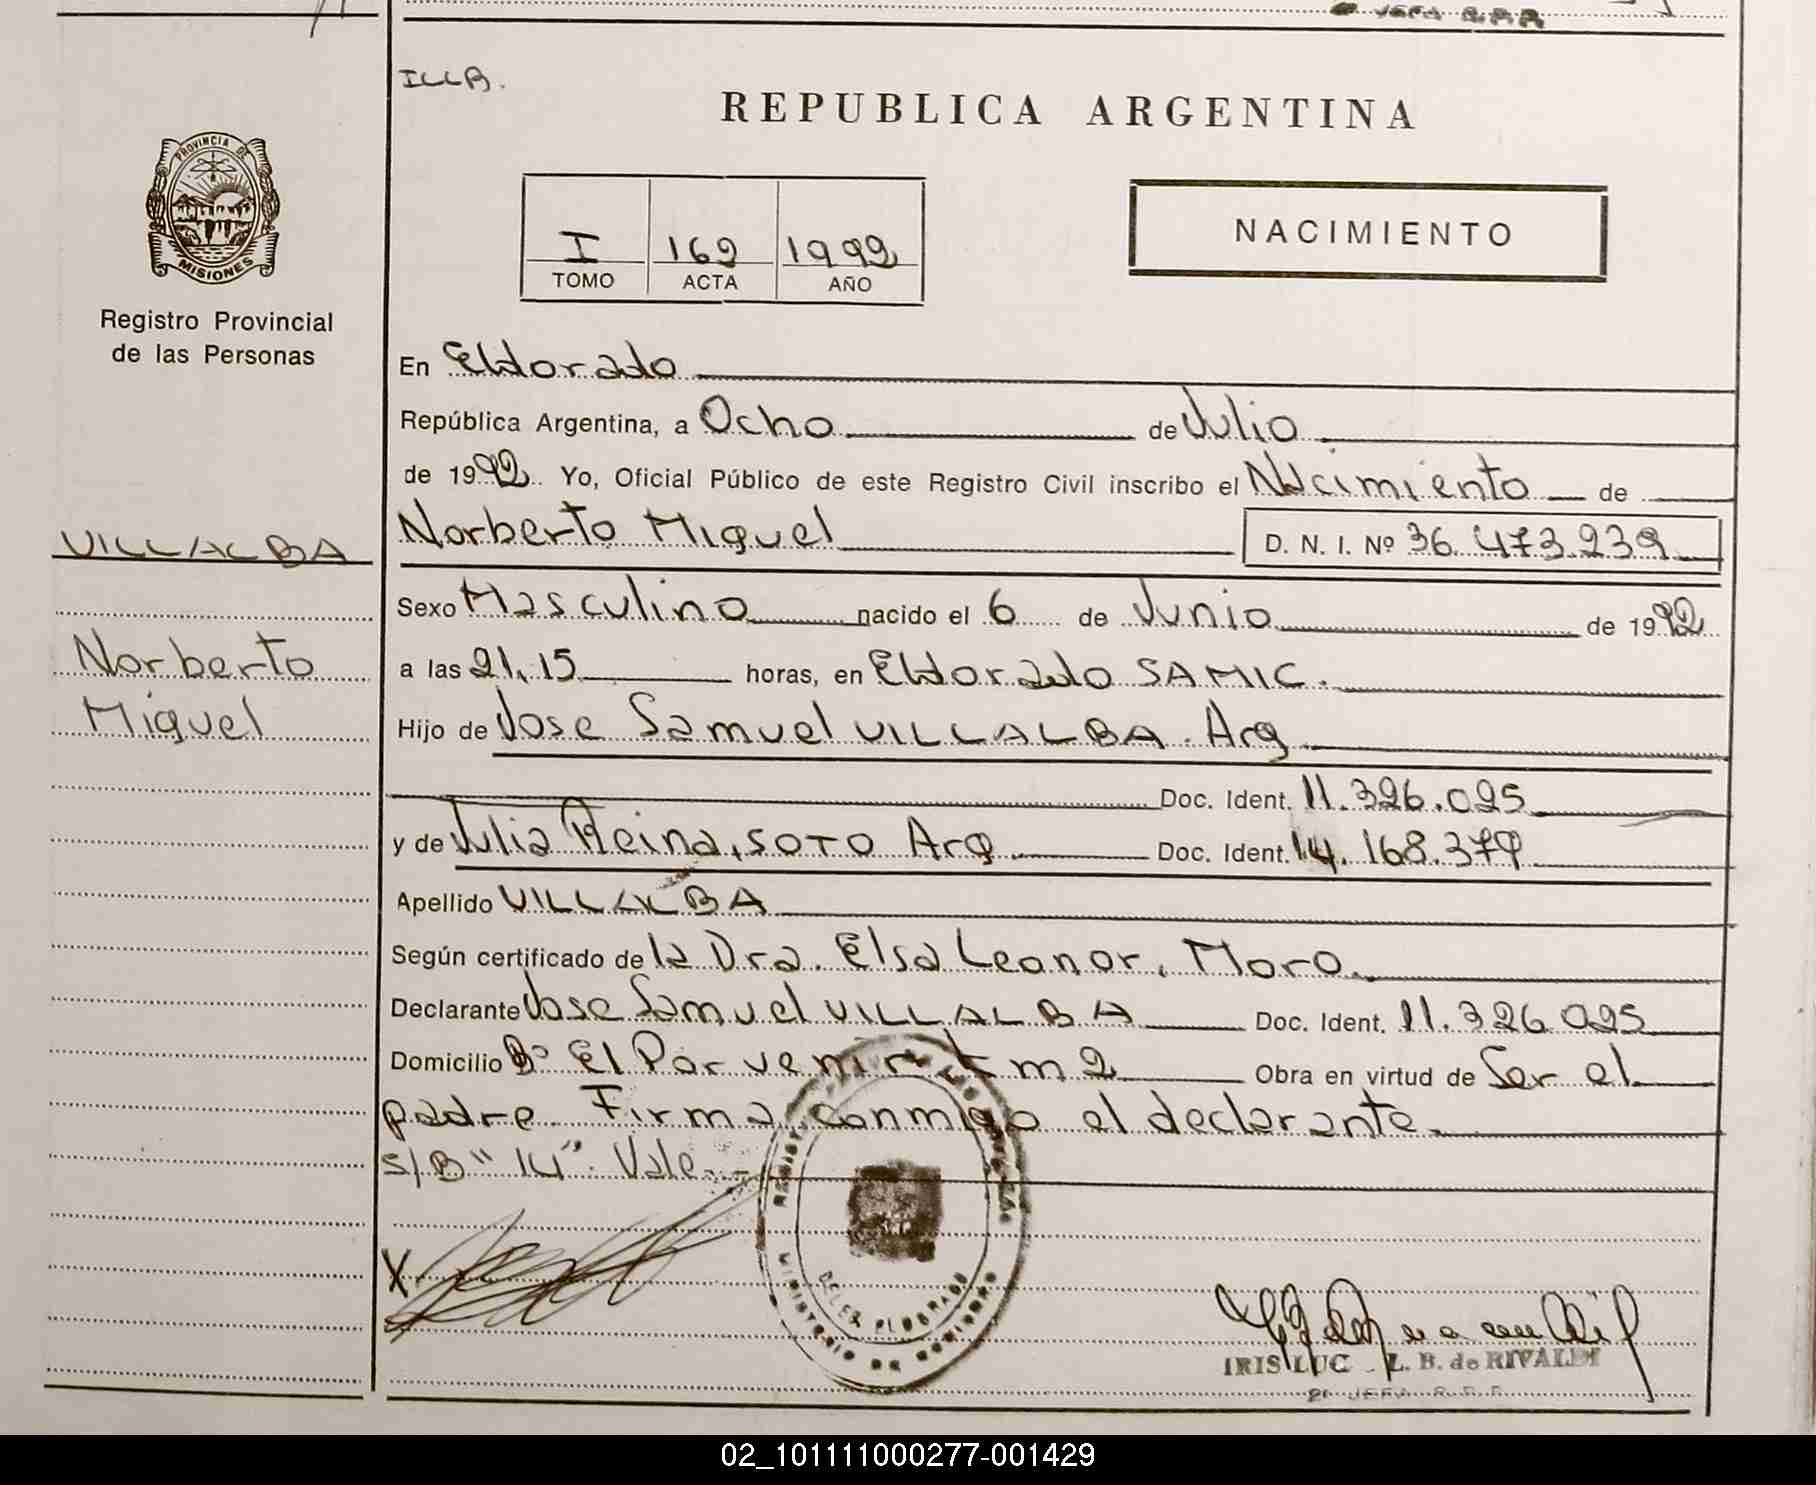 JEFA R.P.P.
ILLB.
REPUBLICA ARGENTINA
PROVINCIA DE
MISIONES
Registro Provincial
de las Personas
I 162 1992
TOMO ACTA AÑO
NACIMIENTO
En Eldorado
República Argentina, a Ocho de Julio
de 1992. Yo, Oficial Público de este Registro Civil inscribo el Nacimiento de
VILLALBA
Norberto Miguel D. N. I. Nº 36.473.239
Sexo Masculino nacido el 6 de Junio de 1992
Norberto
Miguel
a las 21,15 horas, en Eldorado SAMIC.
Hijo de Jose Samuel VILLALBA. Arg
Doc. Ident. 11.326.025
y de Julia Reina, SOTO Arg Doc. Ident. 14.168.379
Apellido VILLALBA
Según certificado de la Dra. Elsa Leonor, Moro
Declarante Jose Samuel VILLALBA Doc. Ident. 11.326.025
Domicilio Bº El Porvenir Km 2 Obra en virtud de Ser el
padre. Firma conmigo el declarante.
S/B "14". Vale.-
X
MINISTERIO DE GOBIERNO
ELDORADO
IRIS LUC L. B. de RIVALDI
JEFA R.P.P.
02_101111000277-001429